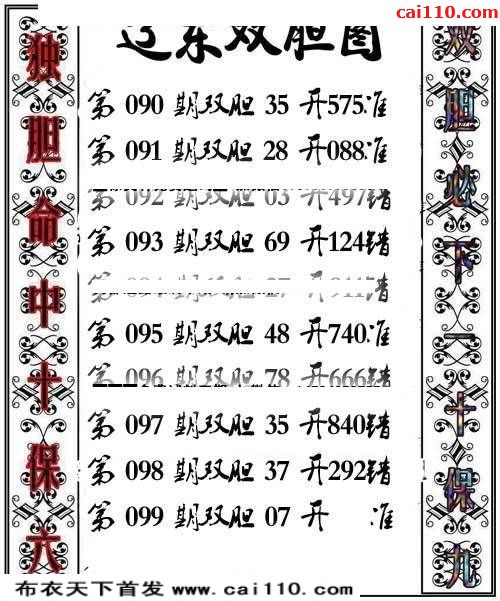 彩110.com
cai110.com
辽东双胆图
独胆命中十保六
双胆必下一十保九
第 090 期双胆 35 开575准
第 091 期双胆 28 开088准
第 092 期双胆 03 开497错
第 093 期双胆 69 开124错
第 094 期双胆 27 开911错
第 095 期双胆 48 开740准
第 096 期双胆 78 开666错
第 097 期双胆 35 开840错
第 098 期双胆 37 开292错
第 099 期双胆 07 开 准
布衣天下首发 www.cai110.com